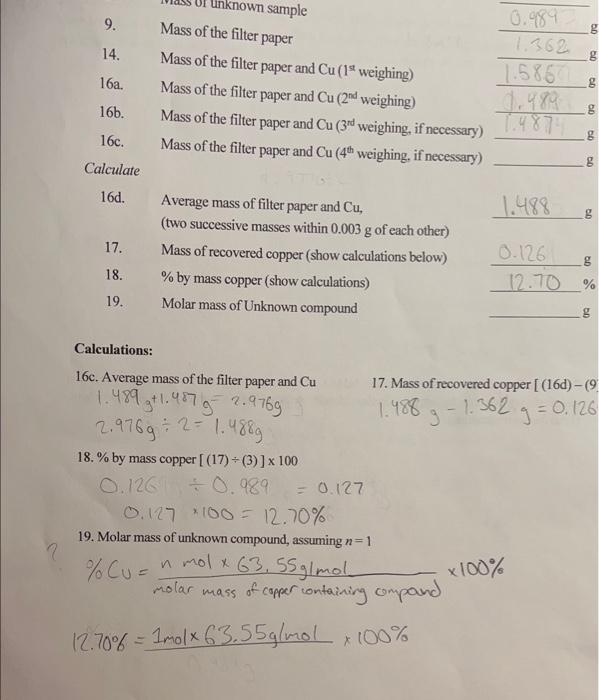 Mass of unknown sample 0.989 g
9. Mass of the filter paper 1.362 g
14. Mass of the filter paper and Cu (1st weighing) 1.586 g
16a. Mass of the filter paper and Cu (2nd weighing) 1.489 g
16b. Mass of the filter paper and Cu (3rd weighing, if necessary) 1.487 g
16c. Mass of the filter paper and Cu (4th weighing, if necessary) g
Calculate
16d. Average mass of filter paper and Cu, 1.488 g
(two successive masses within 0.003 g of each other)
17. Mass of recovered copper (show calculations below) 0.126 g
18. % by mass copper (show calculations) 12.70 %
19. Molar mass of Unknown compound g
Calculations:
16c. Average mass of the filter paper and Cu
1.489 g + 1.487 g = 2.976g
2.976g ÷ 2 = 1.488g
17. Mass of recovered copper [ (16d) – (9)
1.488 g - 1.362 g = 0.126
18. % by mass copper [ (17) ÷ (3) ] x 100
0.126 ÷ 0.989 = 0.127
0.127 × 100 = 12.70%
19. Molar mass of unknown compound, assuming n = 1
? % Cu = n mol x 63.55g/mol x 100%
molar mass of copper containing compand
12.70% = 1mol x 63.55g/mol x 100%